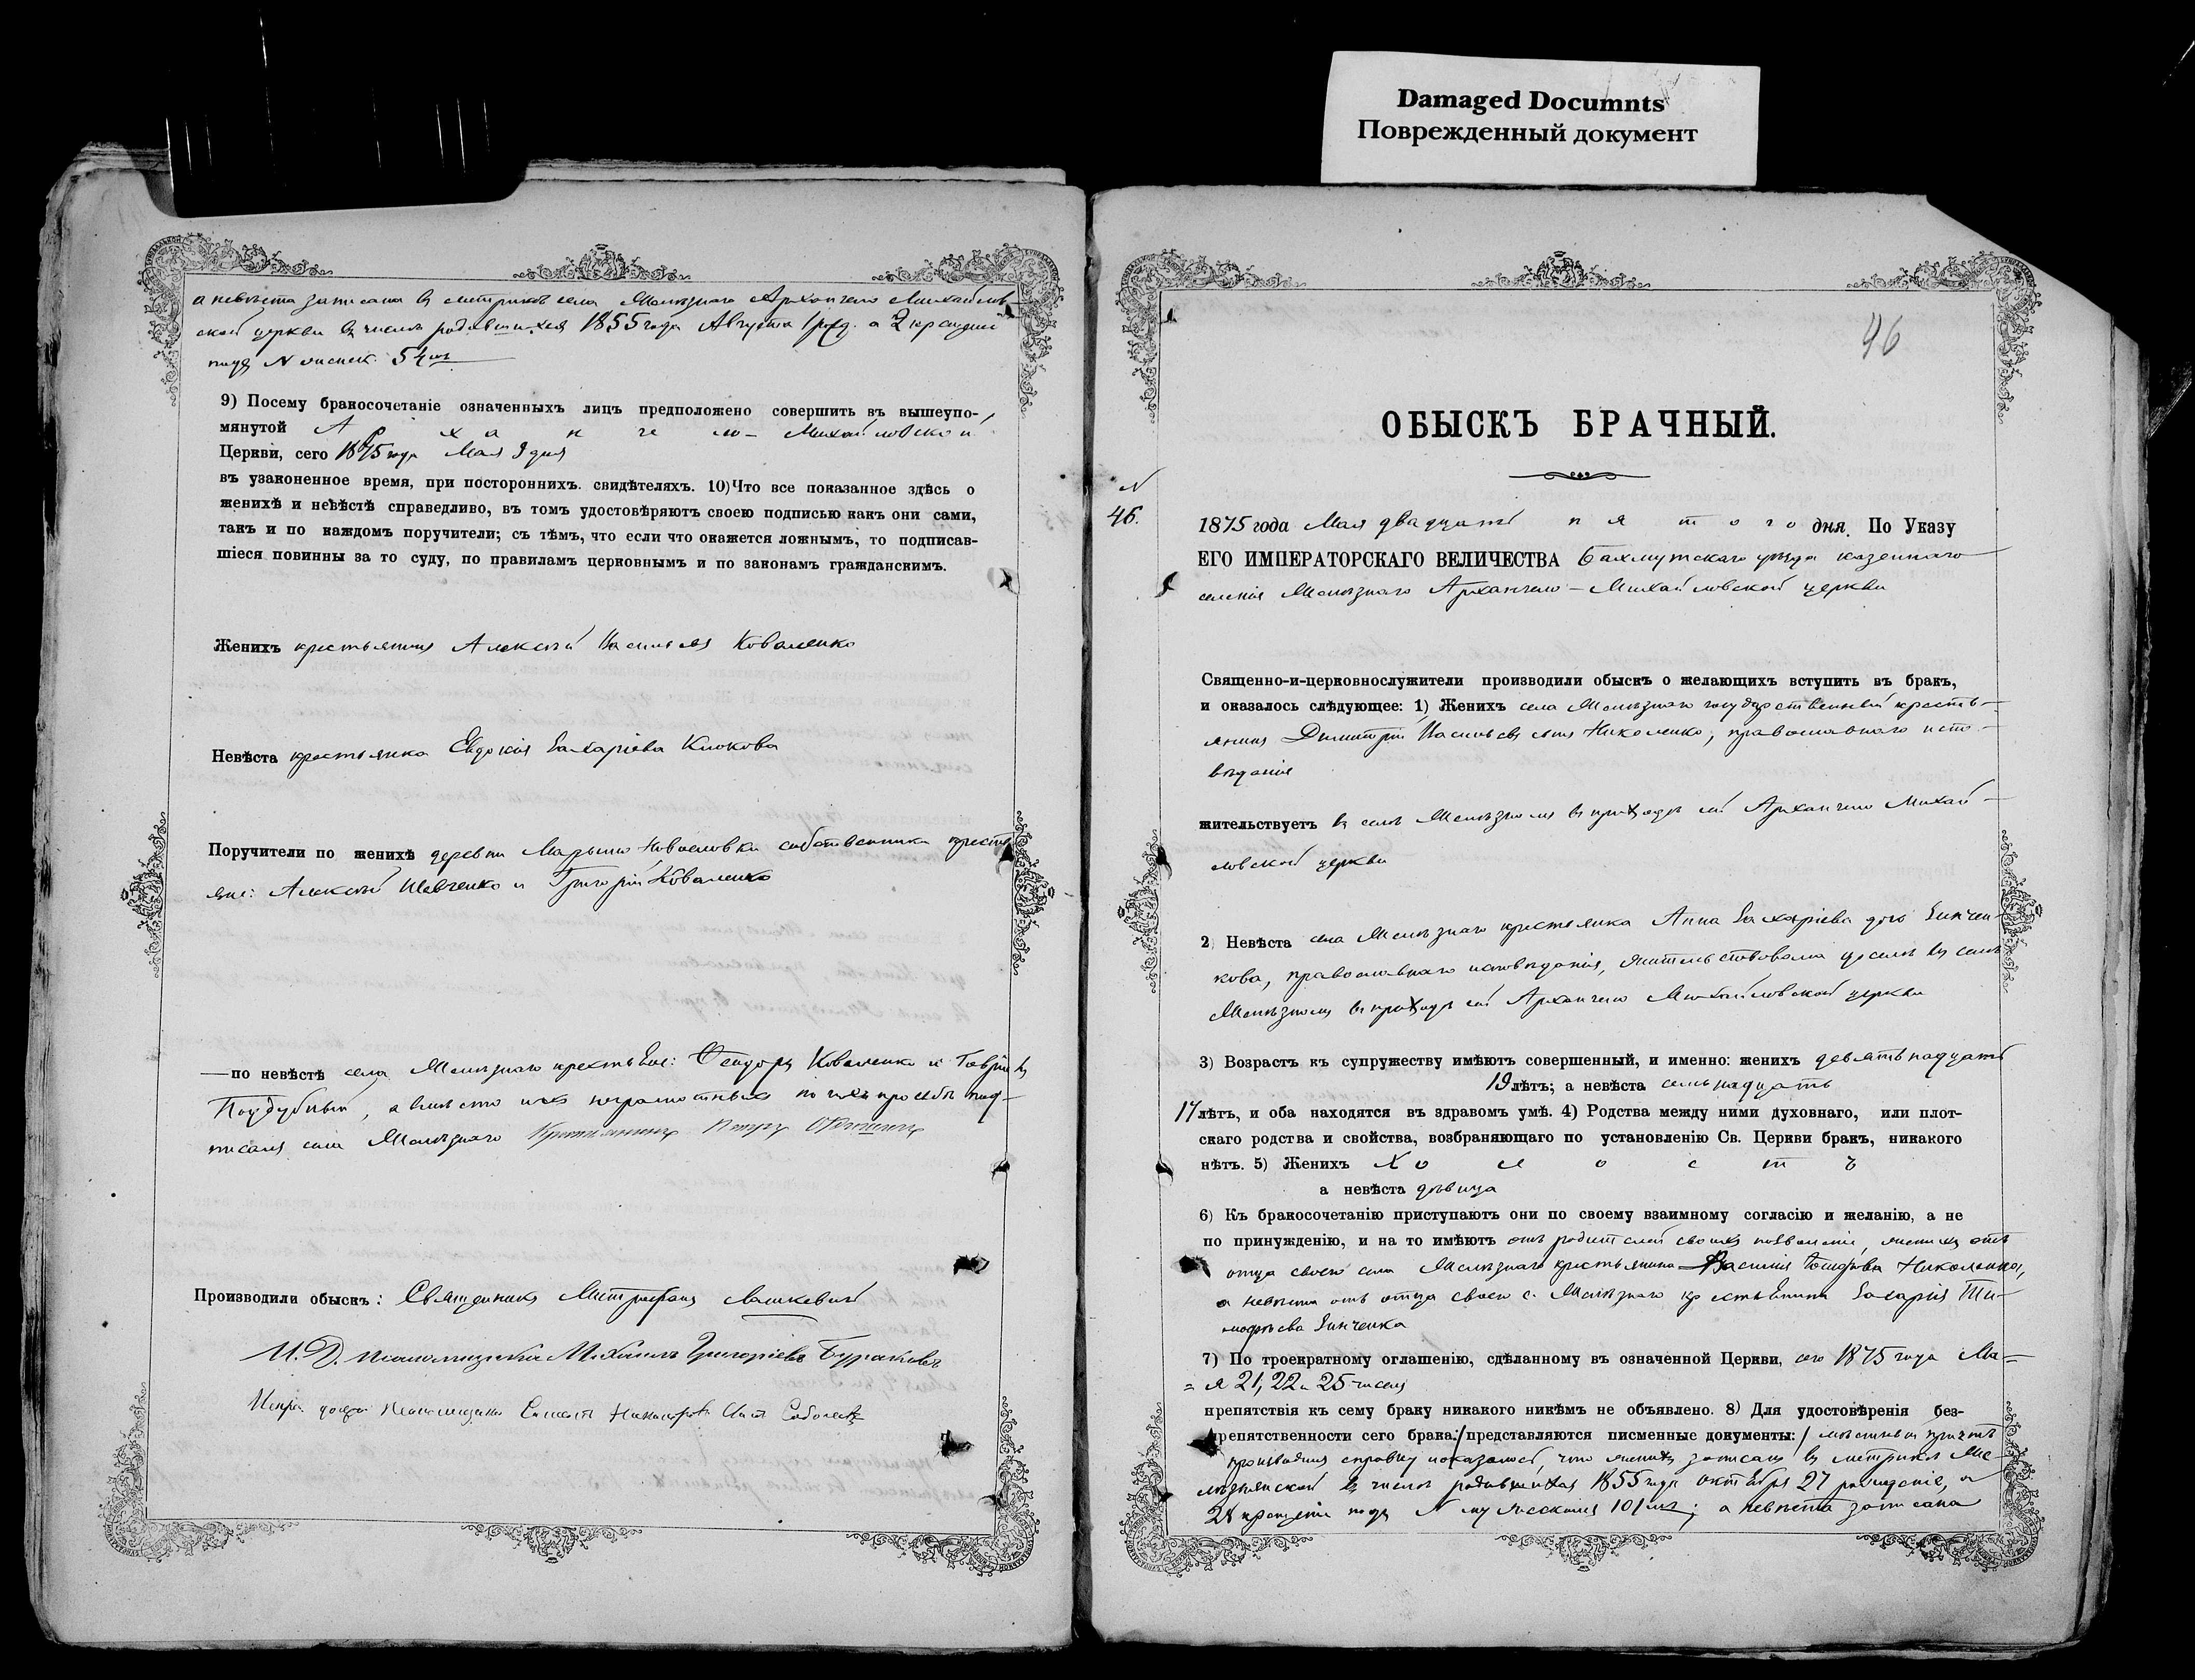 Damaged Documnts
Поврежденный документ
а невѣста записана въ метрикѣ села Архангело Михайлов-
ской церкви въ числѣ родившихся 1855 года Августа 1 рожд. а 2 крещена
подъ № женск. 54мъ
9) Посему бракосочетаніе означенныхъ лицъ предположено совершить въ вышеупо-
мянутой Архангело-Михайловской
Церкви, сего 1875 года Мая 9 дня
въ узаконенное время, при постороннихъ. свидѣтеляхъ. 10) Что все показанное здѣсь о
женихѣ и невѣстѣ справедливо, въ томъ удостовѣряютъ своею подписью какъ они сами,
такъ и по каждомъ поручители; съ тѣмъ, что если что окажется ложнымъ, то подписав-
шіеся повинны за то суду, по правиламъ церковнымъ и по законамъ гражданскимъ.
Женихъ крестьянинъ Алексѣй Васильевъ Коваленко
Невѣста крестьянка Евдокія Захаріева Клюкова
Поручители по женихѣ деревни собственники крестья
яне: Алексѣй Шевченко и Григорій Коваленко
—по невѣстѣ села крестьяне: Ѳеодоръ Коваленко и Гавріилъ
Поддубный, а вмѣсто ихъ неграмотныхъ по ихъ просьбѣ под-
писалъ села крестьянинъ Петръ
Производили обыскъ: Священникъ Митрофанъ
И. Д. псаломщика Михаилъ Григоріевъ Бураковъ
псаломщика
46
ОБЫСКЪ БРАЧНЫЙ.
N
46.
1875 года Мая двадцать пятого дня. По Указу
ЕГО ИМПЕРАТОРСКАГО ВЕЛИЧЕСТВА Бахмутскаго уѣзда казеннаго
селенія Архангело-Михайловской церкви
Священно-и-церковнослужители производили обыскъ о желающихъ вступить въ бракъ,
и оказалось слѣдующее: 1) Женихъ села государственный кресть-
янинъ Димитрій Васильевъ сынъ Николенко, православнаго испо-
вѣданія
жительствуетъ въ селѣ въ приходѣ сей Архангело Михай-
ловской церкви
2) Невѣста села крестьянка Анна Захаріева дочь Зинчен-
кова, православнаго исповѣданія, жительствовала доселѣ въ селѣ
въ приходѣ сей Архангело Михайловской церкви
3) Возрастъ къ супружеству имѣютъ совершенный, и именно: женихъ девятьнадцать
19 лѣтъ; а невѣста семьнадцать
17 лѣтъ, и оба находятся въ здравомъ умѣ. 4) Родства между ними духовнаго, или плот-
скаго родства и свойства, возбраняющаго по установленію Св. Церкви бракъ, никакого
нѣтъ. 5) Женихъ холостъ
а невѣста дѣвица
6) Къ бракосочетанію приступаютъ они по своему взаимному согласію и желанію, а не
по принужденію, и на то имѣютъ отъ родителей своихъ позволеніе, женихъ отъ
отца своего села крестьянина Василія Николенка,
а невѣста отъ отца своего с. крестьянина Захарія Ти-
мофѣева Зинченка
7) По троекратному оглашенію, сдѣланному въ означенной Церкви, сего 1875 года Ма=
=я 21, 22 и 25 числъ
препятствія къ сему браку никакого никѣмъ не объявлено. 8) Для удостовѣренія без-
препятственности сего брака:/представляются писменные документы:/ мѣстный причтъ
производилъ справку показалъ, что женихъ записанъ въ метрикѣ
въ числѣ родившихся 1855 года октября 27 рожденіе, а
28 крещеніе подъ № мужескимъ 101мъ; а невѣста записана